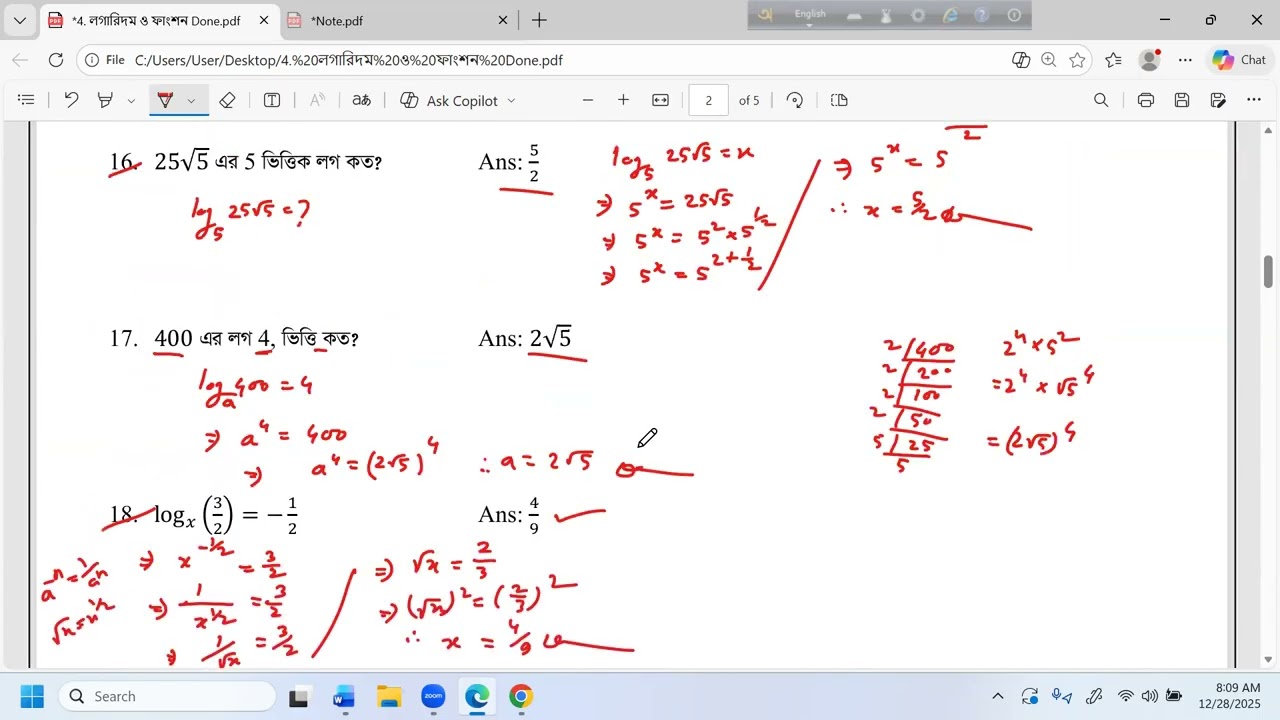 *4. লগারিদম ও ফাংশন Done.pdf
*Note.pdf
English
File C:/Users/User/Desktop/4.%20লগারিদম%20ও%20ফাংশন%20Done.pdf
Chat
Ask Copilot
2 of 5
16. 25√5 এর 5 ভিত্তিক লগ কত? Ans: 5/2
log₅ 25√5 = ?
log₅ 25√5 = x
⇒ 5^x = 25√5
⇒ 5^x = 5^2 × 5^1/2
⇒ 5^x = 5^(2+1/2)
⇒ 5^x = 5^5/2
∴ x = 5/2
17. 400 এর লগ 4, ভিত্তি কত? Ans: 2√5
log_a 400 = 4
⇒ a^4 = 400
⇒ a^4 = (2√5)^4 ∴ a = 2√5
2 | 400
2 | 200
2 | 100
2 | 50
5 | 25
5
2^4 × 5^2
= 2^4 × √5^4
= (2√5)^4
18. log_x (3/2) = −1/2 Ans: 4/9
a^-n = 1/a^n
√x = x^1/2
⇒ x^-1/2 = 3/2
⇒ 1/x^1/2 = 3/2
⇒ 1/√x = 3/2
⇒ √x = 2/3
⇒ (√x)^2 = (2/3)^2
∴ x = 4/9
Search
8:09 AM
12/28/2025